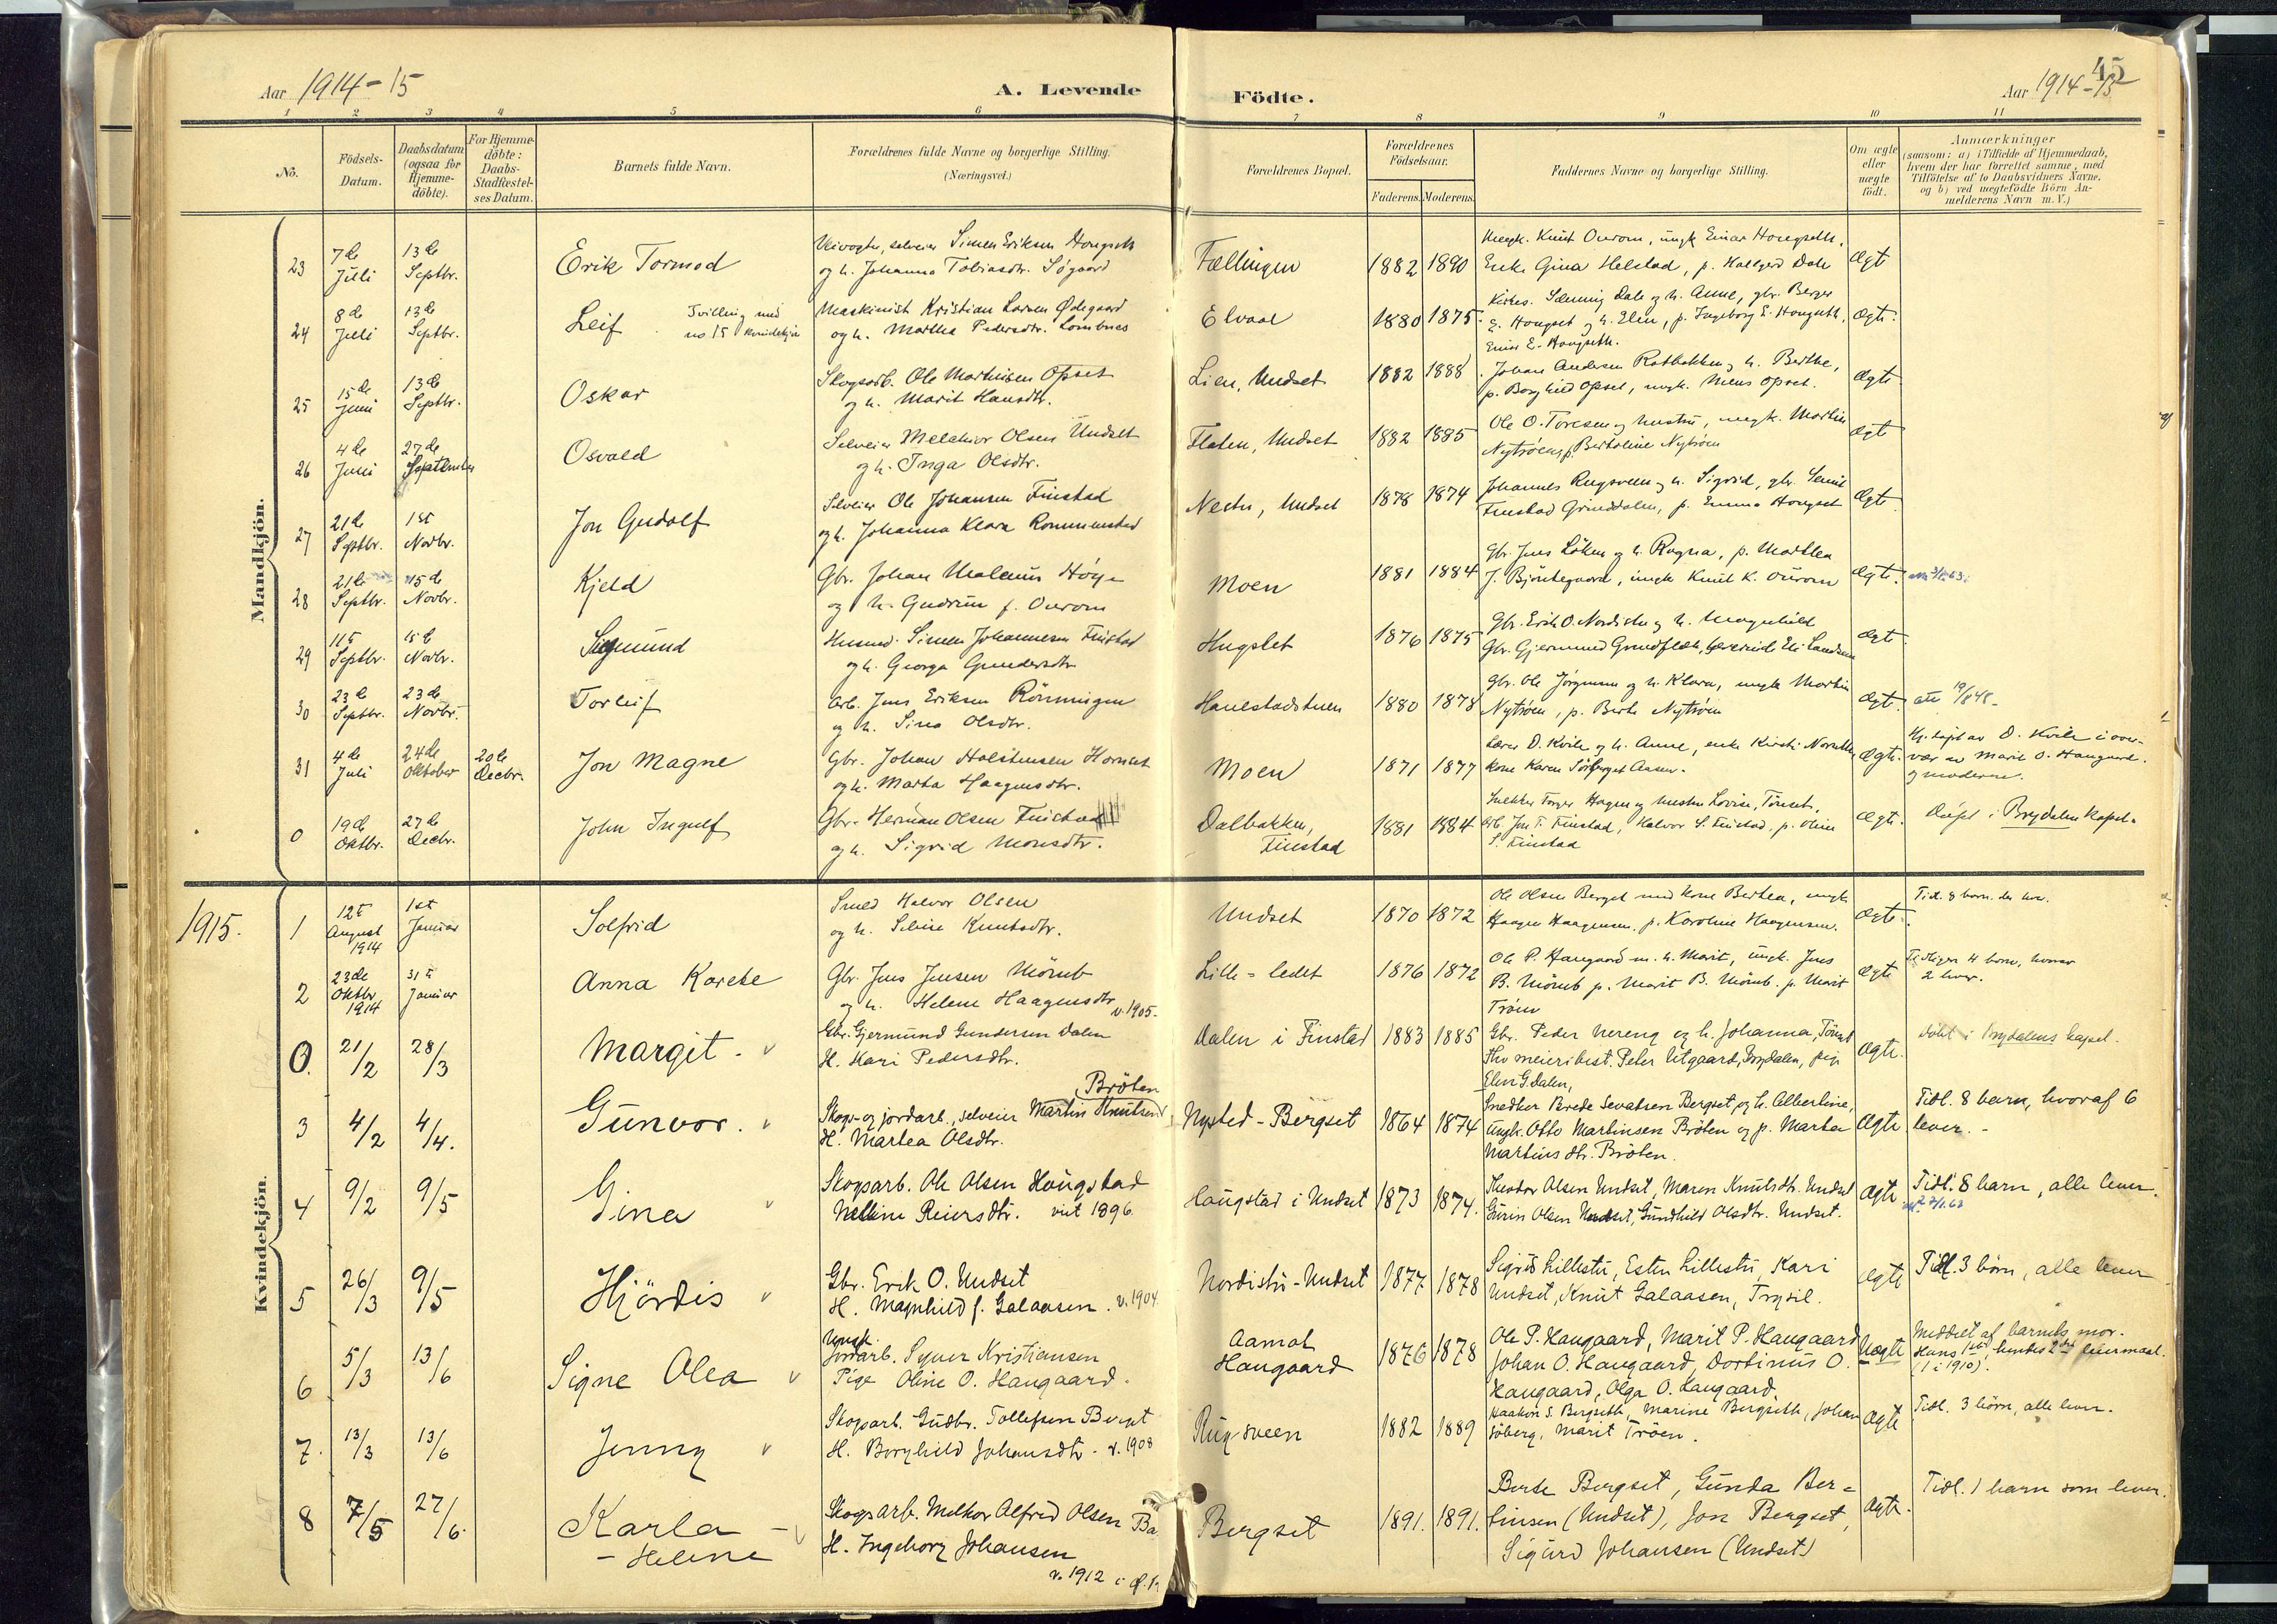 Aar 1914-15
A. Levende
Födte.
45
Aar 1914-15
1 2 3 4 5 6 7 8 9 10 11
No.
Födsels-Datum.
Daabsdatum (ogsaa for Hjemme-döbte).
For Hjemme-döbte: Daabs-Stadfæstel-ses Datum.
Barnets fulde Navn.
Forældrenes fulde Navne og borgerlige Stilling. (Næringsvei.)
Forældrenes Bopæl.
Forældrenes Födselsaar.
Faderens. Moderens.
Faddernes Navne og borgerlige Stilling.
Om ægte eller uægte födt.
Anmærkninger
(saasom: a) i Tilfælde af Hjemmedaab,
hvem der har forrettet samme, med
Tilföielse af to Daabsvidners Navne,
og b) ved uægtefödte Börn An-
melderens Navn m. V.)
Mandkjön.
23 7de Juli 13de Septbr. Erik Tormod
Veivogter, selveier Simen Eriksen Hougseth
og h. Johanna Tobiasdtr. Søgaard
Fællingen 1882 1890
Ungk. Knut Ourom, ungk Einar Hougseth,
Enke Gina Helstad, p. Hallgerd Dale
Ægt
24 8de Juli 13de Septbr. Leif Tvilling med no 15 kvindekjön
Maskinist Kristian Larsen Ødegaard
og h. Marthe Pedersdtr. Lombnes
Elvaal 1880 1875
Kirkes. Sæming Dale og h. Anne, gbr. Berger
E. Hougset og h. Elen, p. Ingeborg E. Hougseth,
Einar E. Hougseth.
Ægte.
25 15de Juni 13de Septbr. Oskar
Skogsarb. Ole Martinsen Opset
og h. Marit Hansdtr.
Lien, Undset 1882 1888
Johan Andersen Rotbakken og h. Berthe,
p. Borghild Opset, ungk. Mens Opset.
Ægte
26 4de Juni 27de September Osvald
Selveier Melchior Olsen Undset
og h. Inga Olsdtr.
Floten, Undset 1882 1885
Ole O. Toresen og hustru, ungk. Martin
Nytrøen, p. Bertoline Nytrøen
Ægte
27 21de Septbr. 1st Novbr. Jon Gudolf
Selveier Ole Johansen Finstad
og h. Johanna Klara Rommenstad
Nestu, Undset 1878 1874
Johannes Rugsveen og h. Sigrid, gbr.
Finstad Grinddalen, p. Emma Hougset
Ægte
28 21de Septbr. 15de Novbr. Kjeld
Gbr. Johan Malenus Høye
og h. Gudrun f. Ourom
Moen 1881 1884
Gbr. Jens Løken og h. Ragna, p. Marthea
J. Bjøntegaard, ungk Knut K. Ourom
Ægte.
29 11te Septbr. 15de Novbr. Sigmund
Husmd. Simen Johannesen Finstad
og h. Georga Gundersdtr.
Hugslet 1876 1875
Gbr. Erik O. Nordistu og h. Magnhild
Gbr. Gjermund Grundflæk, lærerinde Eli Landsem
Ægte.
30 23de Septbr. 23de Novbr. Torleif
Arb. Jens Eriksen Rönningen
og h. Sina Olsdtr.
Hanestadstuen 1880 1878
Gbr. Ole Jörgensen og h. Klara, ungk Martin
Nytrøen, p. Berte Nytrøen
Ægte. att 19/8 48
31 4de Juli 24de Oktober 20de Decbr. Jon Magne
Gbr. Johan Holstensen Hornset
og h. Marta Haagensdtr.
Moen 1871 1877
Lærer O. Kvile og h. Anne, enke Kirsti Norseth
kone Karen Sörberget Aasen.
Ægte.
Hj. døpt av O. Kvile i over-
vær av Marit O. Haugaard
og moderen.
0 19de Oktbr. 27de Decbr. John Ingulf
Gbr. Herman Olsen Finstad
og h. Sigrid Monsdtr.
Dalbakken, Finstad 1881 1884
Snekker Torger Hagen og hustru Lovise, Tönset,
Arb. Jon T. Finstad, Halvor S. Finstad, p. Oline
S. Finstad
Ægte. Døpt i Brydalen kapel.
Kvindekjön.
1915.
1 12te August 1914 1ste Januar Solfrid
Smed Halvor Olsen
og h. Seline Knutsdtr.
Undset 1870 1872
Ole Olsen Berget med kone Berthea, ungk
Haagen Haagensen, p. Karoline Haagensen.
Ægte. Tidl. 8 barn
2 23de Oktbr 1914 31te Januar Anna Karethe
Gbr. Jens Jensen Mömb
og h. Helene Haagensdtr. v. 1905.
Lille-ledet 1876 1872
Ole P. Haugaard m. h. Marit, ungk. Jens
B. Mömb p. Marit B. Mömb. p. Marit
Tröen
Ægte Tidligere 4 barn, hvorav
2 lever.
0. 21/2 28/3 Margit.
Gbr. Gjermund Gundersen Dalen
H. Kari Pedersdtr.
Dalen i Finstad 1883 1885
Gbr. Peder Nereng og h. Johanna, Tönset
Fhv meieribest. Peter Utgaard, Brydalen, pige
Elen G. Dalen,
Ægte. Döbt i Brydalens kapel.
3 4/2 4/4. Gunvor.
Bröten
Skogs- og jordarb., selveier Martin Knutsen
H. Martea Olsdtr.
Nysted-Bergset 1864 1874
Snedker Brede Sevatsen Bergset, og h. Albertine,
Ungk. Otto Martinsen Bröten og p. Marta
Martinsdtr. Bröten.
Ægte Tidl. 8 barn, hvoraf 6
lever.
4 9/2 9/5 Gina
Skogsarb. Ole Olsen Haugstad
Nelline Reiersdtr. viet 1896
Haugstad i Undset 1873 1874.
Theodor Olsen Undset, Maren Knutsdtr. Undset
Gurin Olsen Undset, Gundhild Olsdtr. Undset.
Ægte. Tidl. 8 barn, alle lever.
5 26/3 9/5 Hjördis
Gbr. Erik O. Undset
H. Magnhild f. Galaasen. v. 1904
Nordistu-Undset 1877 1878
Sigrid Lillestu, Esten Lillestu, Kari
Undset, Knut Galaasen, Trysil.
Ægte Tidl. 3 börn, alle lever
6 5/3 13/6 Signe Olea
Ungk.
Jordarb. Syver Kristiansen
Pige Oline O. Haugaard.
Aamot
Haugaard 1876 1878
Ole P. Haugaard, Marit P. Haugaard
Johan O. Haugaard, Dortinus O.
Haugaard, Olga O. Haugaard.
Uægte Meddelt af barnets mor.
Hans 1ste, hendes 2det leiermaal.
(1 i 1910).
7. 13/3 13/6 Jenny
Skogsarb. Gudbr. Tollefsen Berget
H. Borghild Johansdtr. v. 1908
Rugsveen 1882 1889
Haakon S. Bergseth, Marine Bergseth, Johan
Söberg, Marit Tröen.
Ægte Tidl. 3 börn, alle lever.
8 7/5 27/6. Karla-Helene
Skogsarb. Melkor Alfred Olsen Ba
H. Ingeborg Johansen
v. 1912
Bergset 1891. 1891.
Berte Bergset, Gunda Ber-
tinsen (Undset), Jon Bergset,
Sigurd Johansen (Undset)
Ægte. Tidl. 1 barn som lever.